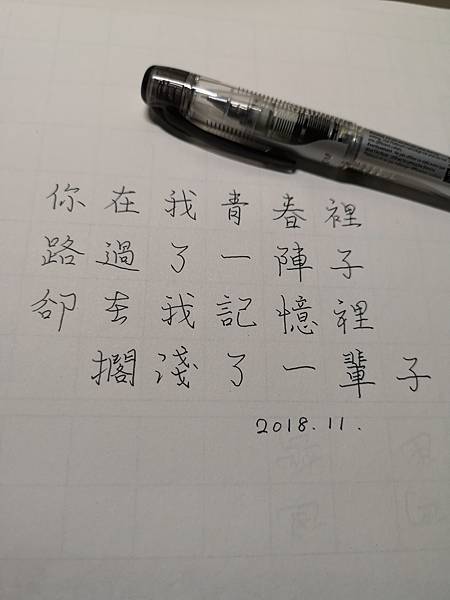 你在我青春裡
路過了一陣子
卻在我記憶裡
擱淺了一輩子
2018.11.